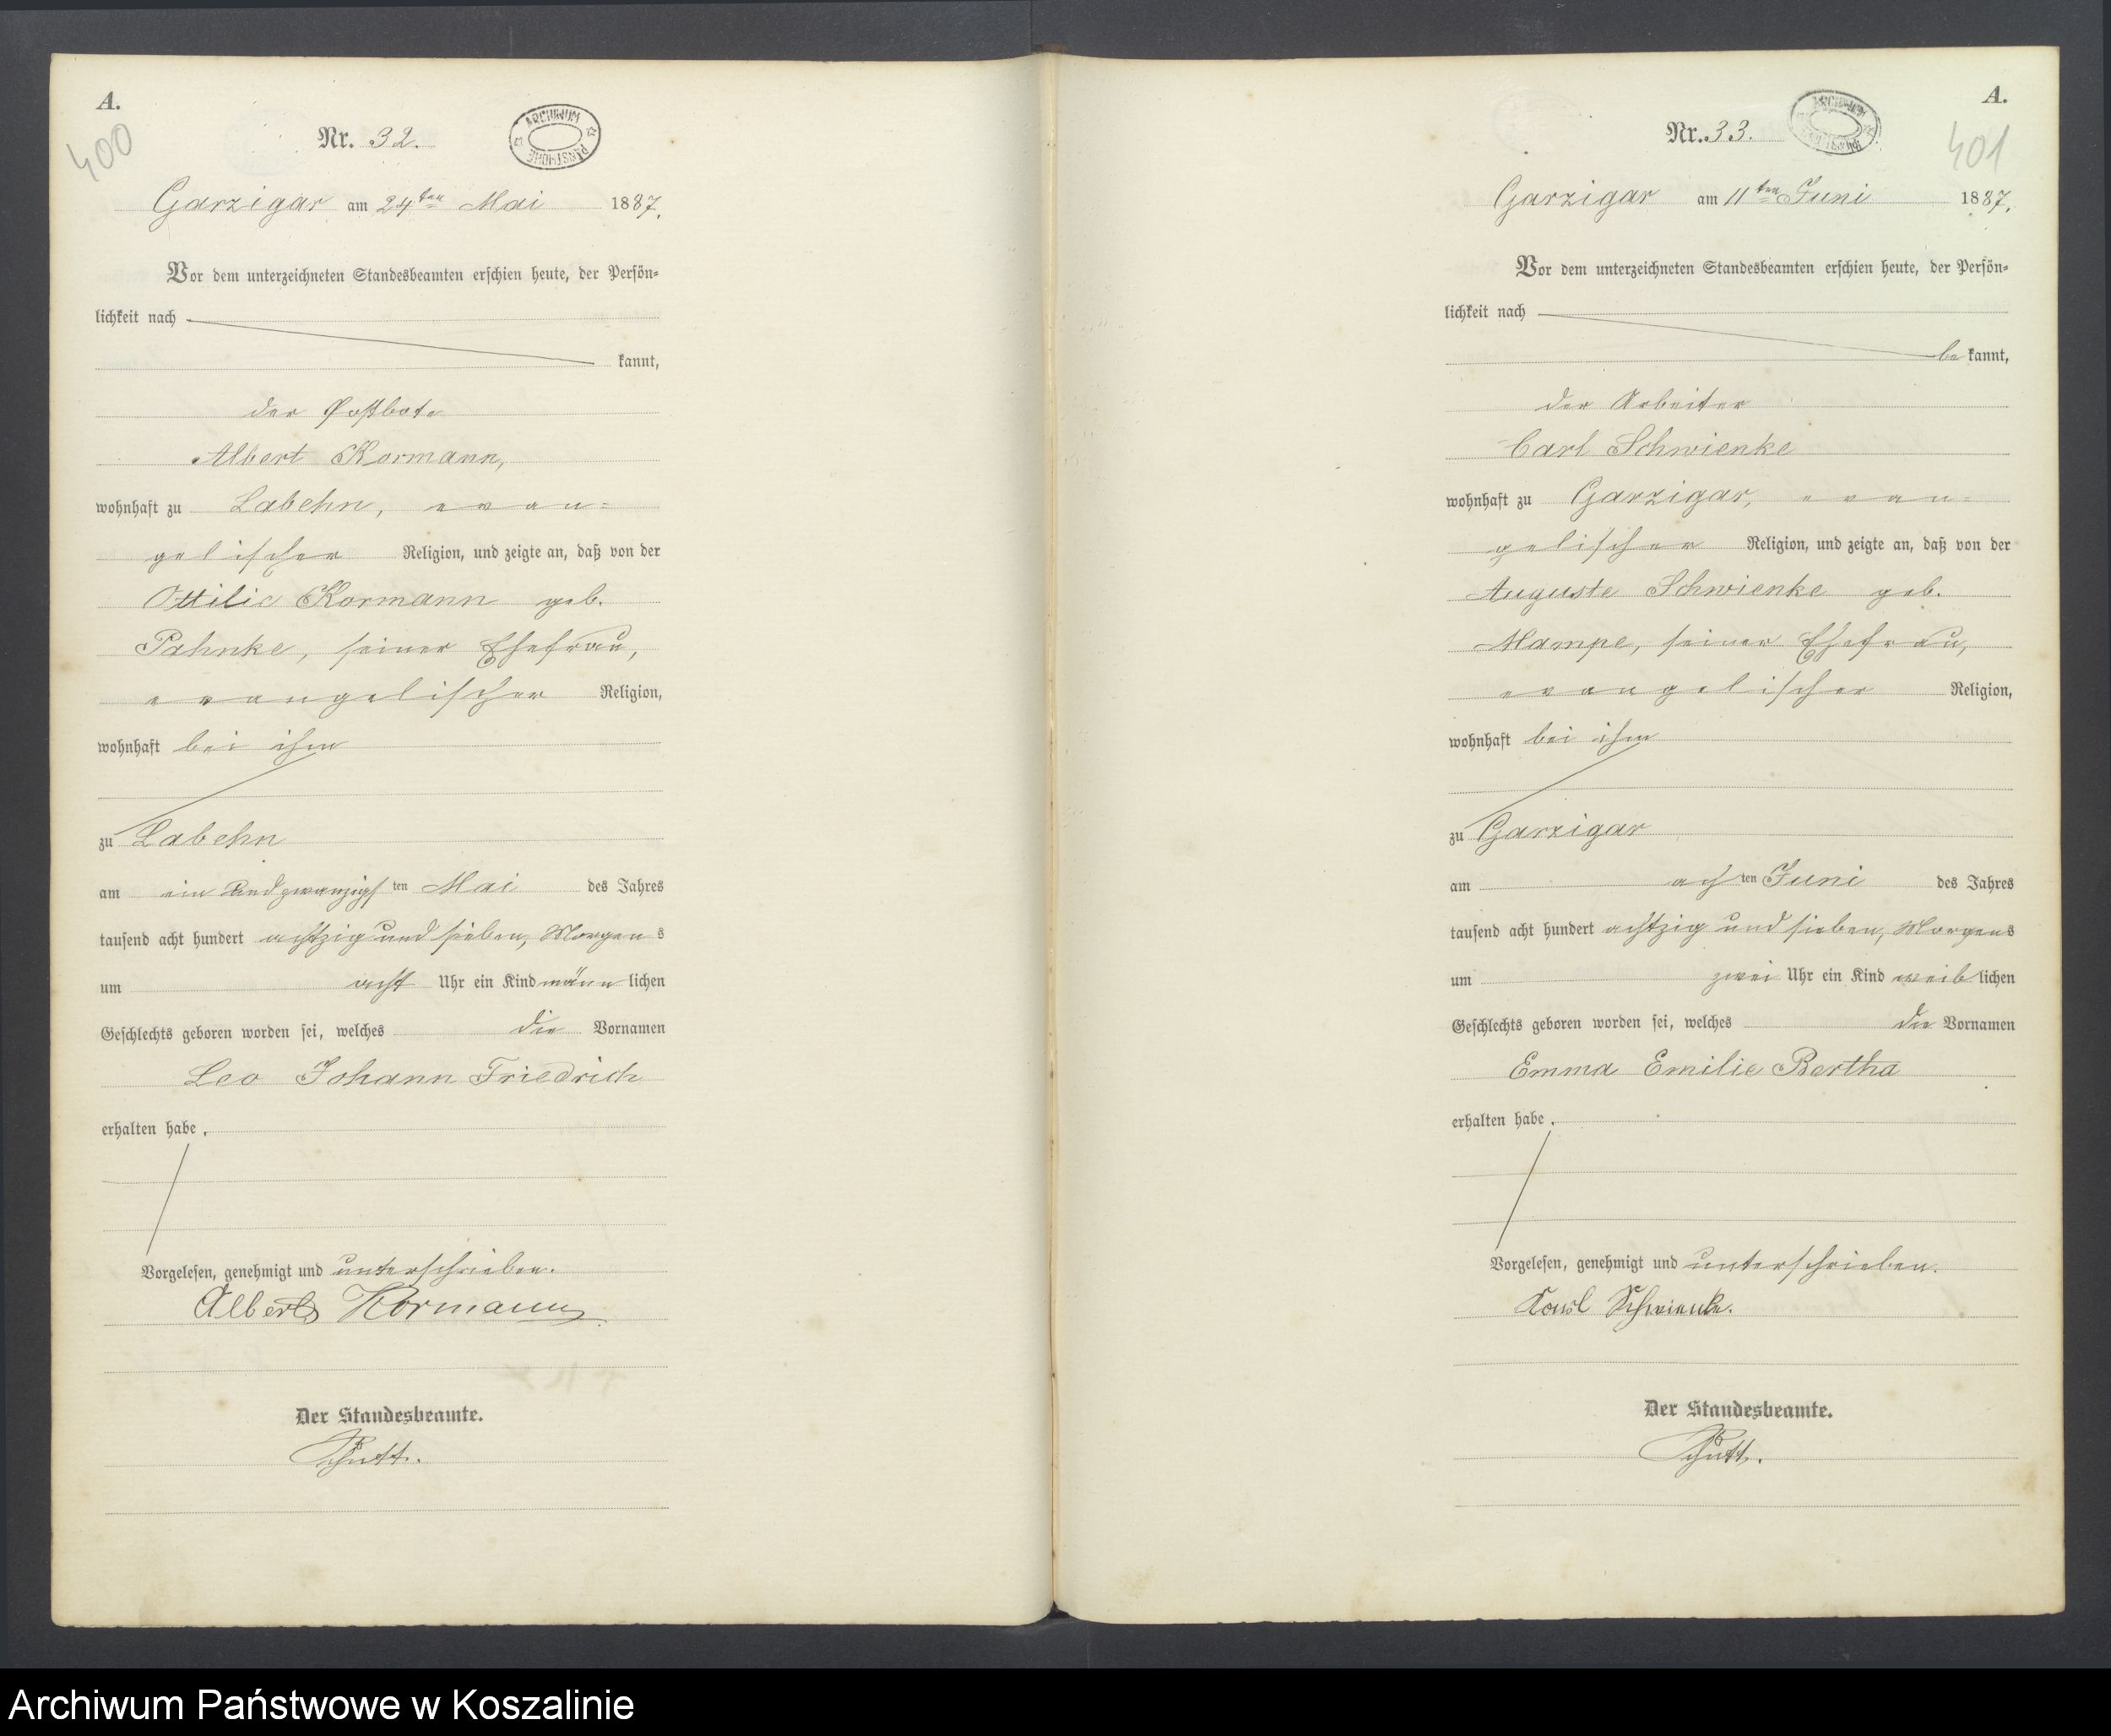 A.
400
Nr. 32.
ARCHIWUM PAŃSTWOWE
Garzigar am 24ten Mai 1887.
Vor dem unterzeichneten Standesbeamten erschien heute, der Persön-
lichkeit nach
kannt,
der Postbote
Albert Kormann,
wohnhaft zu Labehn, evan-
gelischer Religion, und zeigte an, daß von der
Ottilie Kormann geb.
Pahnke, seiner Ehefrau,
evangelischer Religion,
wohnhaft bei ihm
zu Labehn
am ein und zwanzigsten Mai des Jahres
tausend acht hundert achtzig und sieben, Morgens
um acht Uhr ein Kind männlichen
Geschlechts geboren worden sei, welches die Vornamen
Leo Johann Friedrich
erhalten habe.
Vorgelesen, genehmigt und unterschrieben.
Albert Kormann
Der Standesbeamte.
A.
401
Nr. 33.
ARCHIWUM
Garzigar am 11ten Juni 1887.
Vor dem unterzeichneten Standesbeamten erschien heute, der Persön-
lichkeit nach
bekannt,
der Arbeiter
Carl Schwienke
wohnhaft zu Garzigar, evan-
gelischer Religion, und zeigte an, daß von der
Auguste Schwienke geb.
Mampe, seiner Ehefrau,
evangelischer Religion,
wohnhaft bei ihm
zu Garzigar
am achten Juni des Jahres
tausend acht hundert achtzig und sieben, Morgens
um zwei Uhr ein Kind weiblichen
Geschlechts geboren worden sei, welches die Vornamen
Emma Emilie Bertha
erhalten habe.
Vorgelesen, genehmigt und unterschrieben.
Karl Schwienke.
Der Standesbeamte.
Archiwum Państwowe w Koszalinie